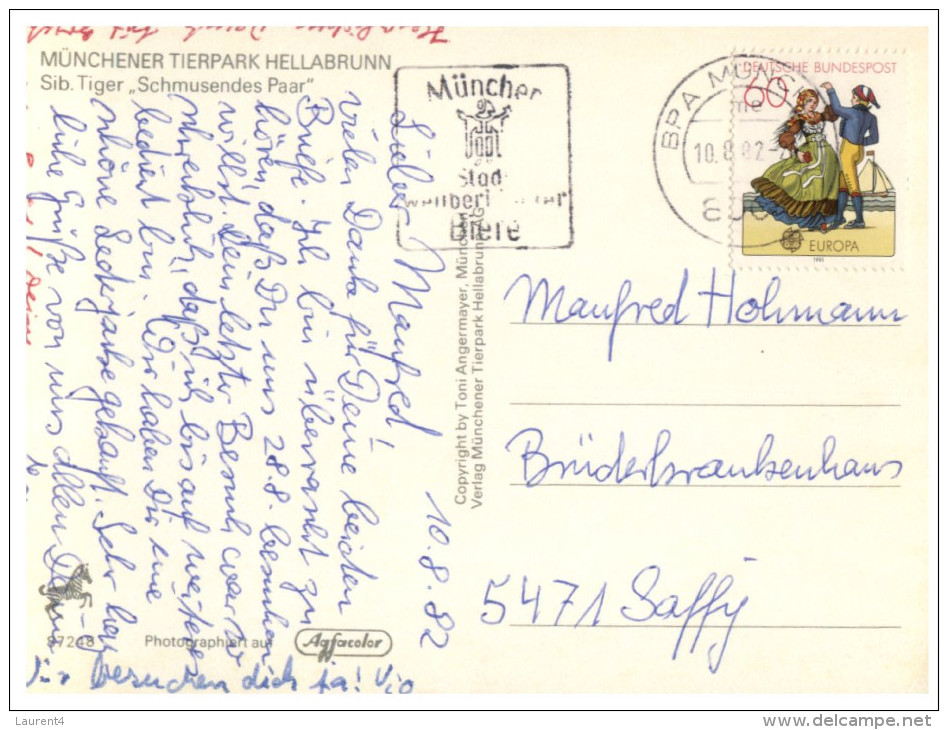 MÜNCHENER TIERPARK HELLABRUNN
Sib. Tiger „Schmusendes Paar"
10.8.82
Lieber Manfred,
vielen Dank für Deine beiden
Briefe. Ich bin überrascht zu
hören, daß Du uns 28.8. besuchen
willst. Dein letzter Besuch war so
daß ich bis auf weiteres
bedient bin. Wir haben Dir eine
schöne Lederjacke gekauft. Sehr herz
liche Grüße von uns allen
besuchen dich ja!
87248
Photographiert auf
Agfacolor
Copyright by Toni Angermayer, München
Verlag Münchener Tierpark Hellabrunn AG
Münchner
Stadt
Biere
BPA MÜN
10.8.82
DEUTSCHE BUNDESPOST
60
EUROPA
1981
Manfred Hohmann
Brüderkrankenhaus
5471 Saffig
Laurent4
www.delcampe.net